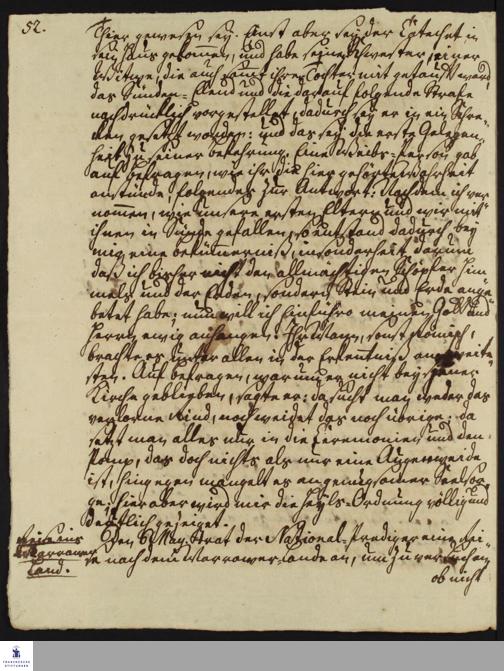 52.
hier gewesen sey. Einst aber sey der Catechet in
sein Haus gekommen, und habe seiner Schwester, einer
Witwe, die auch samt ihrer Tochter mit getauft ward,
das Sünden-Elend und die darauf folgende Strafe
nachdrücklich vorgestellet, dadurch sey er in ein Schre-
cken gesetzt worden: und das sey die erste Gelegen-
heit zu seiner Bekehrung. Eine Weibs-Person gab
auf befragen, wie ihr die hier gehörte Wahrheit
anstünde, folgendes zur Antwort: Nachdem ich ver-
nommen, wie unsere ersten Eltern und wir mit
ihnen in Sünde gefallen, so entstand dadurch bey
mir eine Bekümmerniß, insonderheit darum
daß ich bisher nicht den allmächtigen Schöpfer Him-
mels und der Erden, sondern Stein und Erde ange-
betet habe: nun will ich hinführo meinem Gott und
Herrn ewig anhangen. Ihr Mann, sonst Römisch,
brachte es unter allen in der Erkentniß am weite-
sten. Auf befragen, warum er nicht bey jener
Kirche geblieben, sagte er: da sucht man weder das
verlorne Rind, noch weidet das noch übrige; da
setzt man alles nur in die Ceremonien und den
Pomp, das doch nichts als nur eine Augenweide
ist, hingegen mangelt es an genugsamer Seelsor-
ge; hier aber wird mir die Heyls-Ordnung völlig und
deutlich gezeiget.
Reise ins
Marrawer
Land.
Den 6 May trat der National-Prediger eine Rei-
se nach dem Marrawer-Lande an, um zu versuchen
ob nicht
FRANCKESCHE
STIFTUNGEN